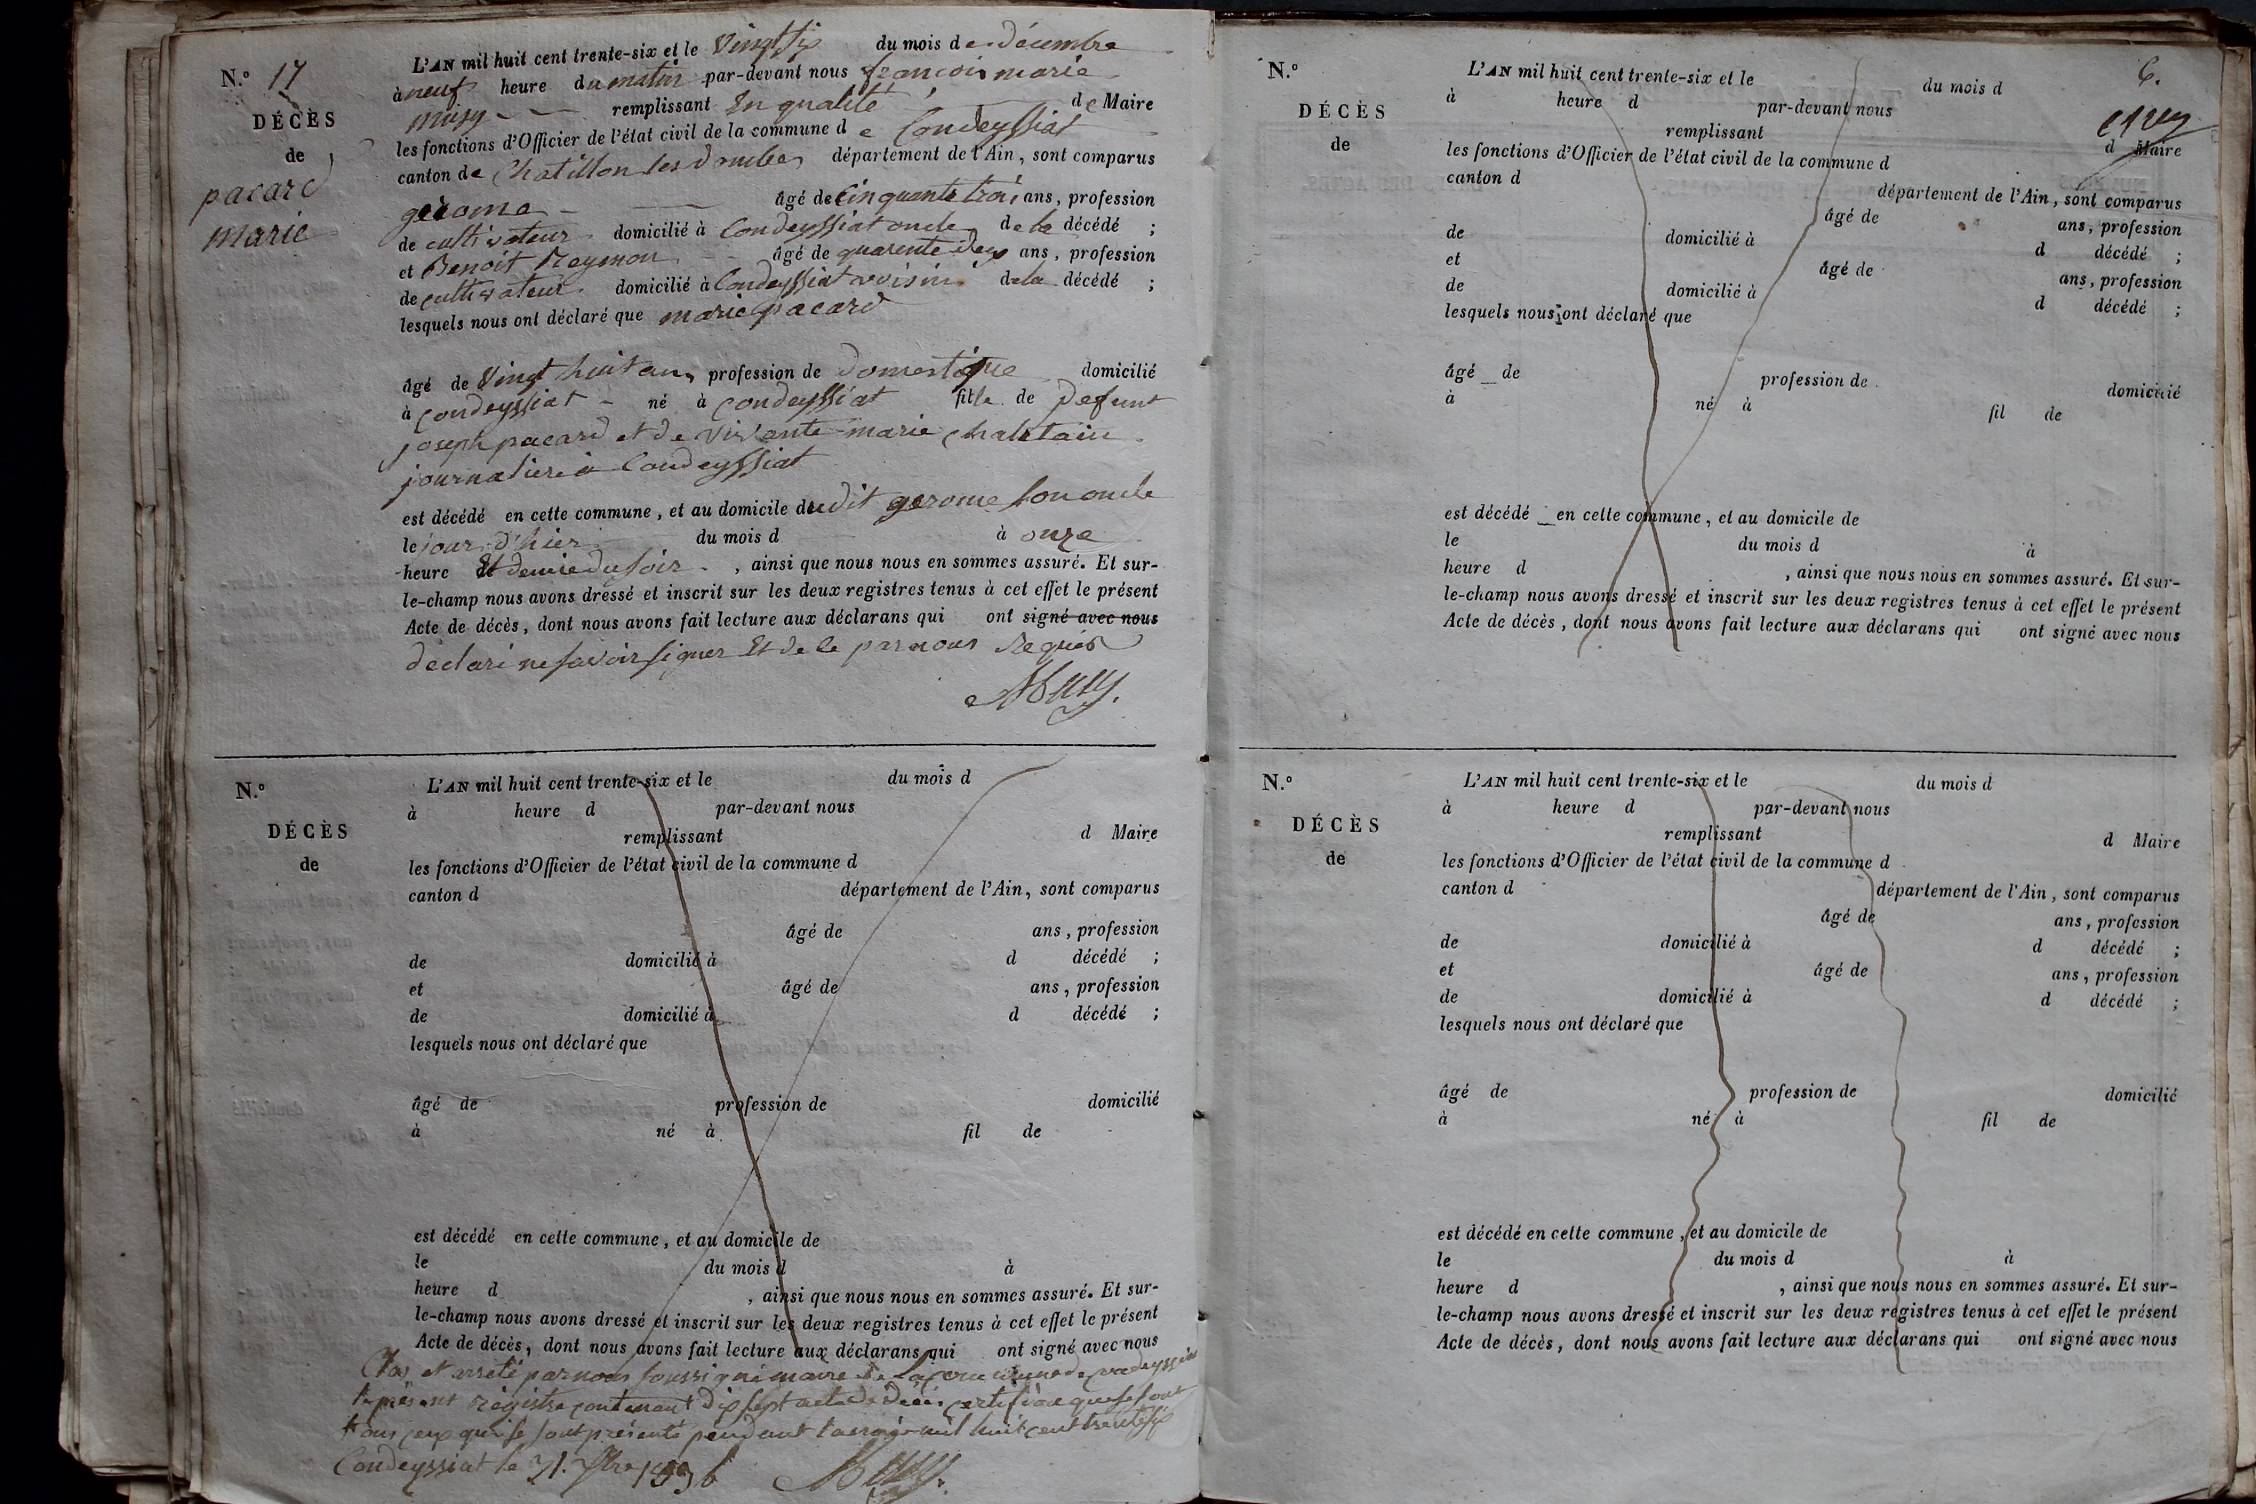 N.º 17
DÉCÈS
de
pacard
marie
L'AN mil huit cent trente-six et le Vingt six du mois de décembre
à neuf heure du matin par-devant nous françois marie
remplissant En qualité de Maire
les fonctions d'Officier de l'état civil de la commune de Condeyssiat
canton de Chatillon les dombes département de l'Ain, sont comparus
gérome âgé de Cinquante trois ans, profession
de cultivateur domicilié à Condeyssiat oncle de la décédé ;
et Benoit Reymon âgé de quarente deux ans, profession
de cultivateur domicilié à Condeyssiat voisin de la décédé ;
lesquels nous ont déclaré que marie pacard
âgé de Vingt huit ans profession de domestique domicilié
à condeyssiat né à condeyssiat fille de defunt
joseph pacard et de vivante marie chaletain
journaliere à Condeyssiat
est décédé en cette commune, et au domicile du dit gerome son oncle
le jour d'hier du mois d à onze
heure Et demie du soir , ainsi que nous nous en sommes assuré. Et sur-
le-champ nous avons dressé et inscrit sur les deux registres tenus à cet effet le présent
Acte de décès, dont nous avons fait lecture aux déclarans qui ont signé avec nous
déclaré ne savoir signer Et de ce par nous Requis
N.º
DÉCÈS
de
L'AN mil huit cent trente-six et le du mois d
à heure d par-devant nous
remplissant d Maire
les fonctions d'Officier de l'état civil de la commune d
canton d département de l'Ain, sont comparus
âgé de ans, profession
de domicilié à d décédé ;
et âgé de ans, profession
de domicilié à d décédé ;
lesquels nous ont déclaré que
âgé de profession de domicilié
à né à fil de
est décédé en cette commune, et au domicile de
le du mois d à
heure d , ainsi que nous nous en sommes assuré. Et sur-
le-champ nous avons dressé et inscrit sur les deux registres tenus à cet effet le présent
Acte de décès, dont nous avons fait lecture aux déclarans qui ont signé avec nous
Clos et arreté par nous soussigné maire de la commune de Condeyssiat
le présent régistre contenant dix sept acte de décès certifions que se sont
tous ceux qui se sont présenté pendant l'année mil huit cent trente six
Condeyssiat le 31. Xbre 1836
N.º
DÉCÈS
de
6.
L'AN mil huit cent trente-six et le du mois d
à heure d par-devant nous
remplissant d Maire
les fonctions d'Officier de l'état civil de la commune d
canton d département de l'Ain, sont comparus
âgé de ans, profession
de domicilié à d décédé ;
et âgé de ans, profession
de domicilié à d décédé ;
lesquels nous ont déclaré que
âgé de profession de domicilié
à né à fil de
est décédé en cette commune, et au domicile de
le du mois d à
heure d , ainsi que nous nous en sommes assuré. Et sur-
le-champ nous avons dressé et inscrit sur les deux registres tenus à cet effet le présent
Acte de décès, dont nous avons fait lecture aux déclarans qui ont signé avec nous
N.º
DÉCÈS
de
L'AN mil huit cent trente-six et le du mois d
à heure d par-devant nous
remplissant d Maire
les fonctions d'Officier de l'état civil de la commune d
canton d département de l'Ain, sont comparus
âgé de ans, profession
de domicilié à d décédé ;
et âgé de ans, profession
de domicilié à d décédé ;
lesquels nous ont déclaré que
âgé de profession de domicilié
à né à fil de
est décédé en cette commune, et au domicile de
le du mois d à
heure d , ainsi que nous nous en sommes assuré. Et sur-
le-champ nous avons dressé et inscrit sur les deux registres tenus à cet effet le présent
Acte de décès, dont nous avons fait lecture aux déclarans qui ont signé avec nous